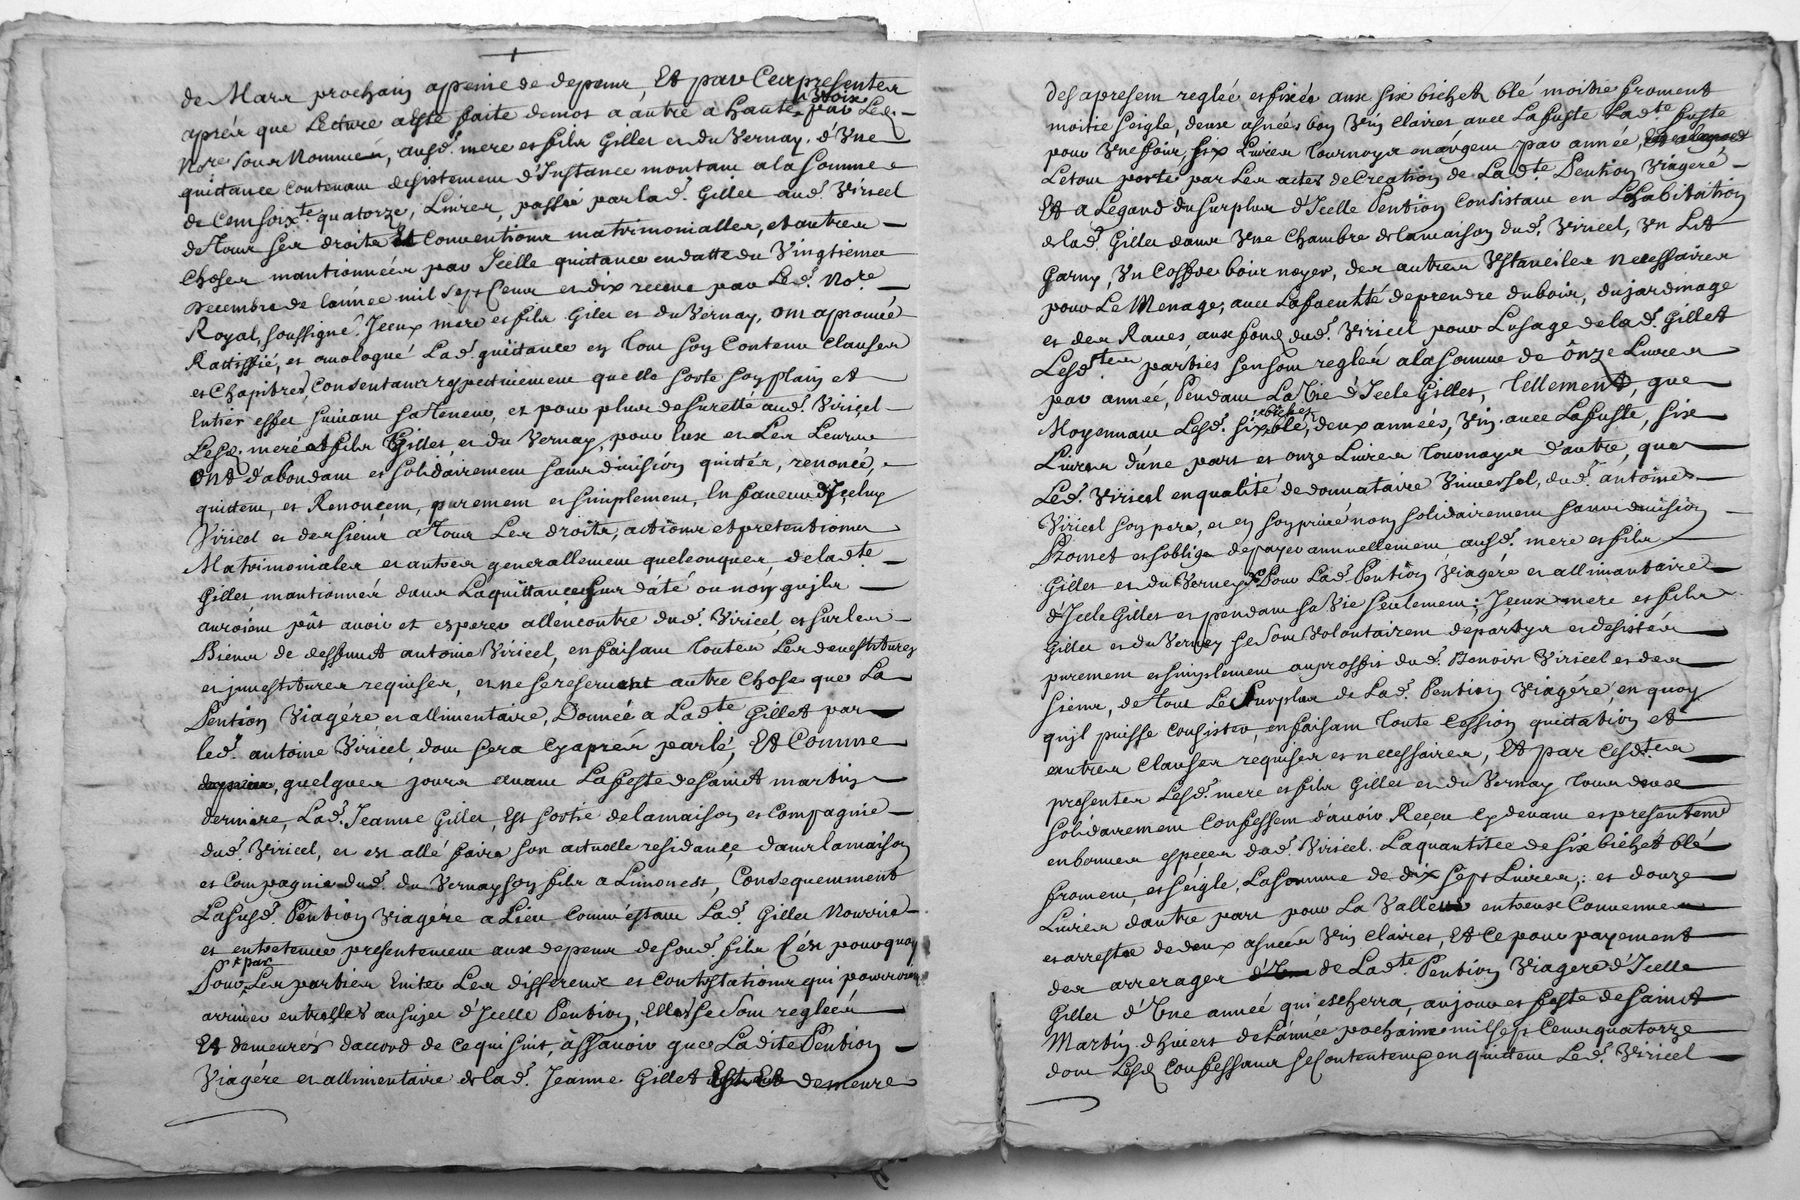 de Mars prochain apeine de depens, Et par Ces presentes
aprés que Lecture a esté faite demot a autre a haute voix par Led.
No.re Sous Nommés, ausd. mere et fils Gillet et du Vernay, d'Une
quittance Contenant desistement d'Instance montant a la Somme
de Cent soix.te quatorze, Livres, passée par lad. Gillet aud. Viricel
de Tous ses droits Et Conventions matrimonialles, et autres
Choses mantionnées par Icelle quittance en datte du Vingtieme
Decembre de lannée mil sept Cens et dix receue par Led. No.re
Royal, soussigné. Iceux mere et fils Gilet et du Vernay, ont aprouvé
Rattiffié, et omologué Lad. quittance en Tout son Contenu Clauses
et Chapitres, Consentants respectivement quelle sorte son plain et
Entier effet suivant sa Teneur, et pour plus de suretté aud. Viricel
Lesd. mere et fils Gillet, et du Vernay, pour Eux et Les Leurs
Ont d'abondant et solidairement sans division quittés, renoncé,
quittent, et Renoncent, purement et simplement, En faveur d'Iceluy
Viricel et des siens a Tous Les droits, actions et pretentions
Matrimoniales et autres generallement quelconques, de la dte
Gillet mantionnés dans La quittance sus datté ou non quils
auroient pût avoir et esperer allencontre dud. Viricel, et sur les
Biens de deffunct antoine Viricel, en faisant Toutes Les devestitures
et jnvestitures requises, et ne se reservent autre Chose que La
Pention Viagére et allimentaire, Donneé a Lad.te Gillet par
led. antoine Viricel, dont sera Cyaprés parlé, Et Comme
quelques jours avant La feste de Sainct martin
derniere, Lad. Jeanne Gillet, Est sortie de la maison et Compagnie
dud. Viricel, et est allé faire son actuelle residance dans la maison
et Compagnie dud. du Vernay son fils a Limonest, Consequemment
La susd. Pention Viagére a Lieu Comm'estant Lad. Gillet Nourrie
et entretenue presentement aux depens de sond. fils C'est pourquoy
Pour + par Les parties Eviter Les differens et Contestations qui pourroient
arriver entrelles au sujet d'Icelle Pention, Elles se sont regleés
Et demeurés daccord de ce qui suit, assavoir que Ladite Pention
Viagére et allimentaire de lad. Jeanne Gillet Est Et demeure
des apresent regleé et fixée aux six bichet blé moitié froment
moitié seigle, deux asnées bon Vin Clairet avec La fuste Lad.te fuste
pour Une fois, six Livres Tournoys en argent par année,
Le tout porté par Les actes de Creation de Lad.te Pention Viagére
Et a Legard du surplus d'Icelle Pention Consistant en Lhabitation
de lad. Gillet dans Une Chambre de la maison dud. Viricel, Un Lit
Garny, Un Coffre bois noyer, des autres Ustancilles necessaires
pour Le Menage, avec La facultté de prendre du bois, du jardinage
et des Raves aux fond dud. Viricel pour L'usage de lad. Gillet
Lesd.tes parties sen sont reglés a la somme de Onze Livres
par année, Pendant La Vie d'Icele Gillet, Tellement, que
Moyennant Lesd. six bichet blé, deux années, Vin avec La fuste, six
Livres dune part et onze Livres Tournoys d'autre, que
Led. Viricel en qualité de donnataire Universel, dud. antoine
Viricel son pere, et en son privé nom solidairement sans division
Promet et soblige de payer annuellement ausd. mere et fils
Gillet et du Verney Pour Lad. Pention Viagére et allimantaire
d'Icele Gillet et pendant sa Vie seulement; Iceux mere et fils
Gillet et du Verney se sont Volontairem. departys et desistés
purement et simplement au proffit dud. Benoist Viricel et des
siens, de tout Le surplus de Lad. Pention Viagére en quoy
quil puisse Consister, en faisant Toute Cession quittation et
autres Clauses requises et necessaires, Et par Cesd.tes
presentes Lesd. mere et fils Gillet et du Vernay Tous deux
solidairement Confessent d'avoir Receu Cy devant et presentem.t
en bonnes espeçes dud. Viricel. La quantitée de six bichet blé
froment, et séigle, La somme de dix sept Livres; et douze
Livres dautre part pour La Valleur entreux Convenue
et arrestée de deux asnées Vin Clairet, Et Ce pour payement
des arrerages de Lad.te Pention Viagére d'Icelle
Gillet d'Une année qui escherra, au jour et feste de Sainct
Martin d'hivert de l'année prochaine mil sept Cens quatorze
dont Lesd. Confessans se Contentent en quittent Led. Viricel